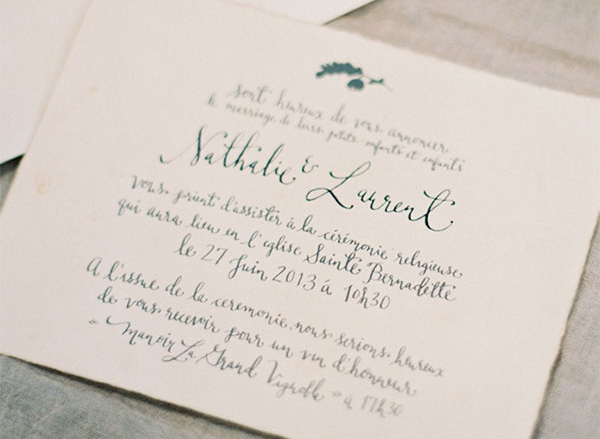 sont heureux de vous annoncer
le marriage de leurs petits enfants et enfants
Nathalie & Laurent
Vous prient d'assister à la cérémonie religieuse
qui aura lieu en l'eglise Sainte Bernadette
le 27 Juin 2013 à 10h30
A l'issue de la ceremonie, nous serions heureux
de vous recevoir pour un vin d'honneur
« Manoir La Grand Vignoble » à 17h30